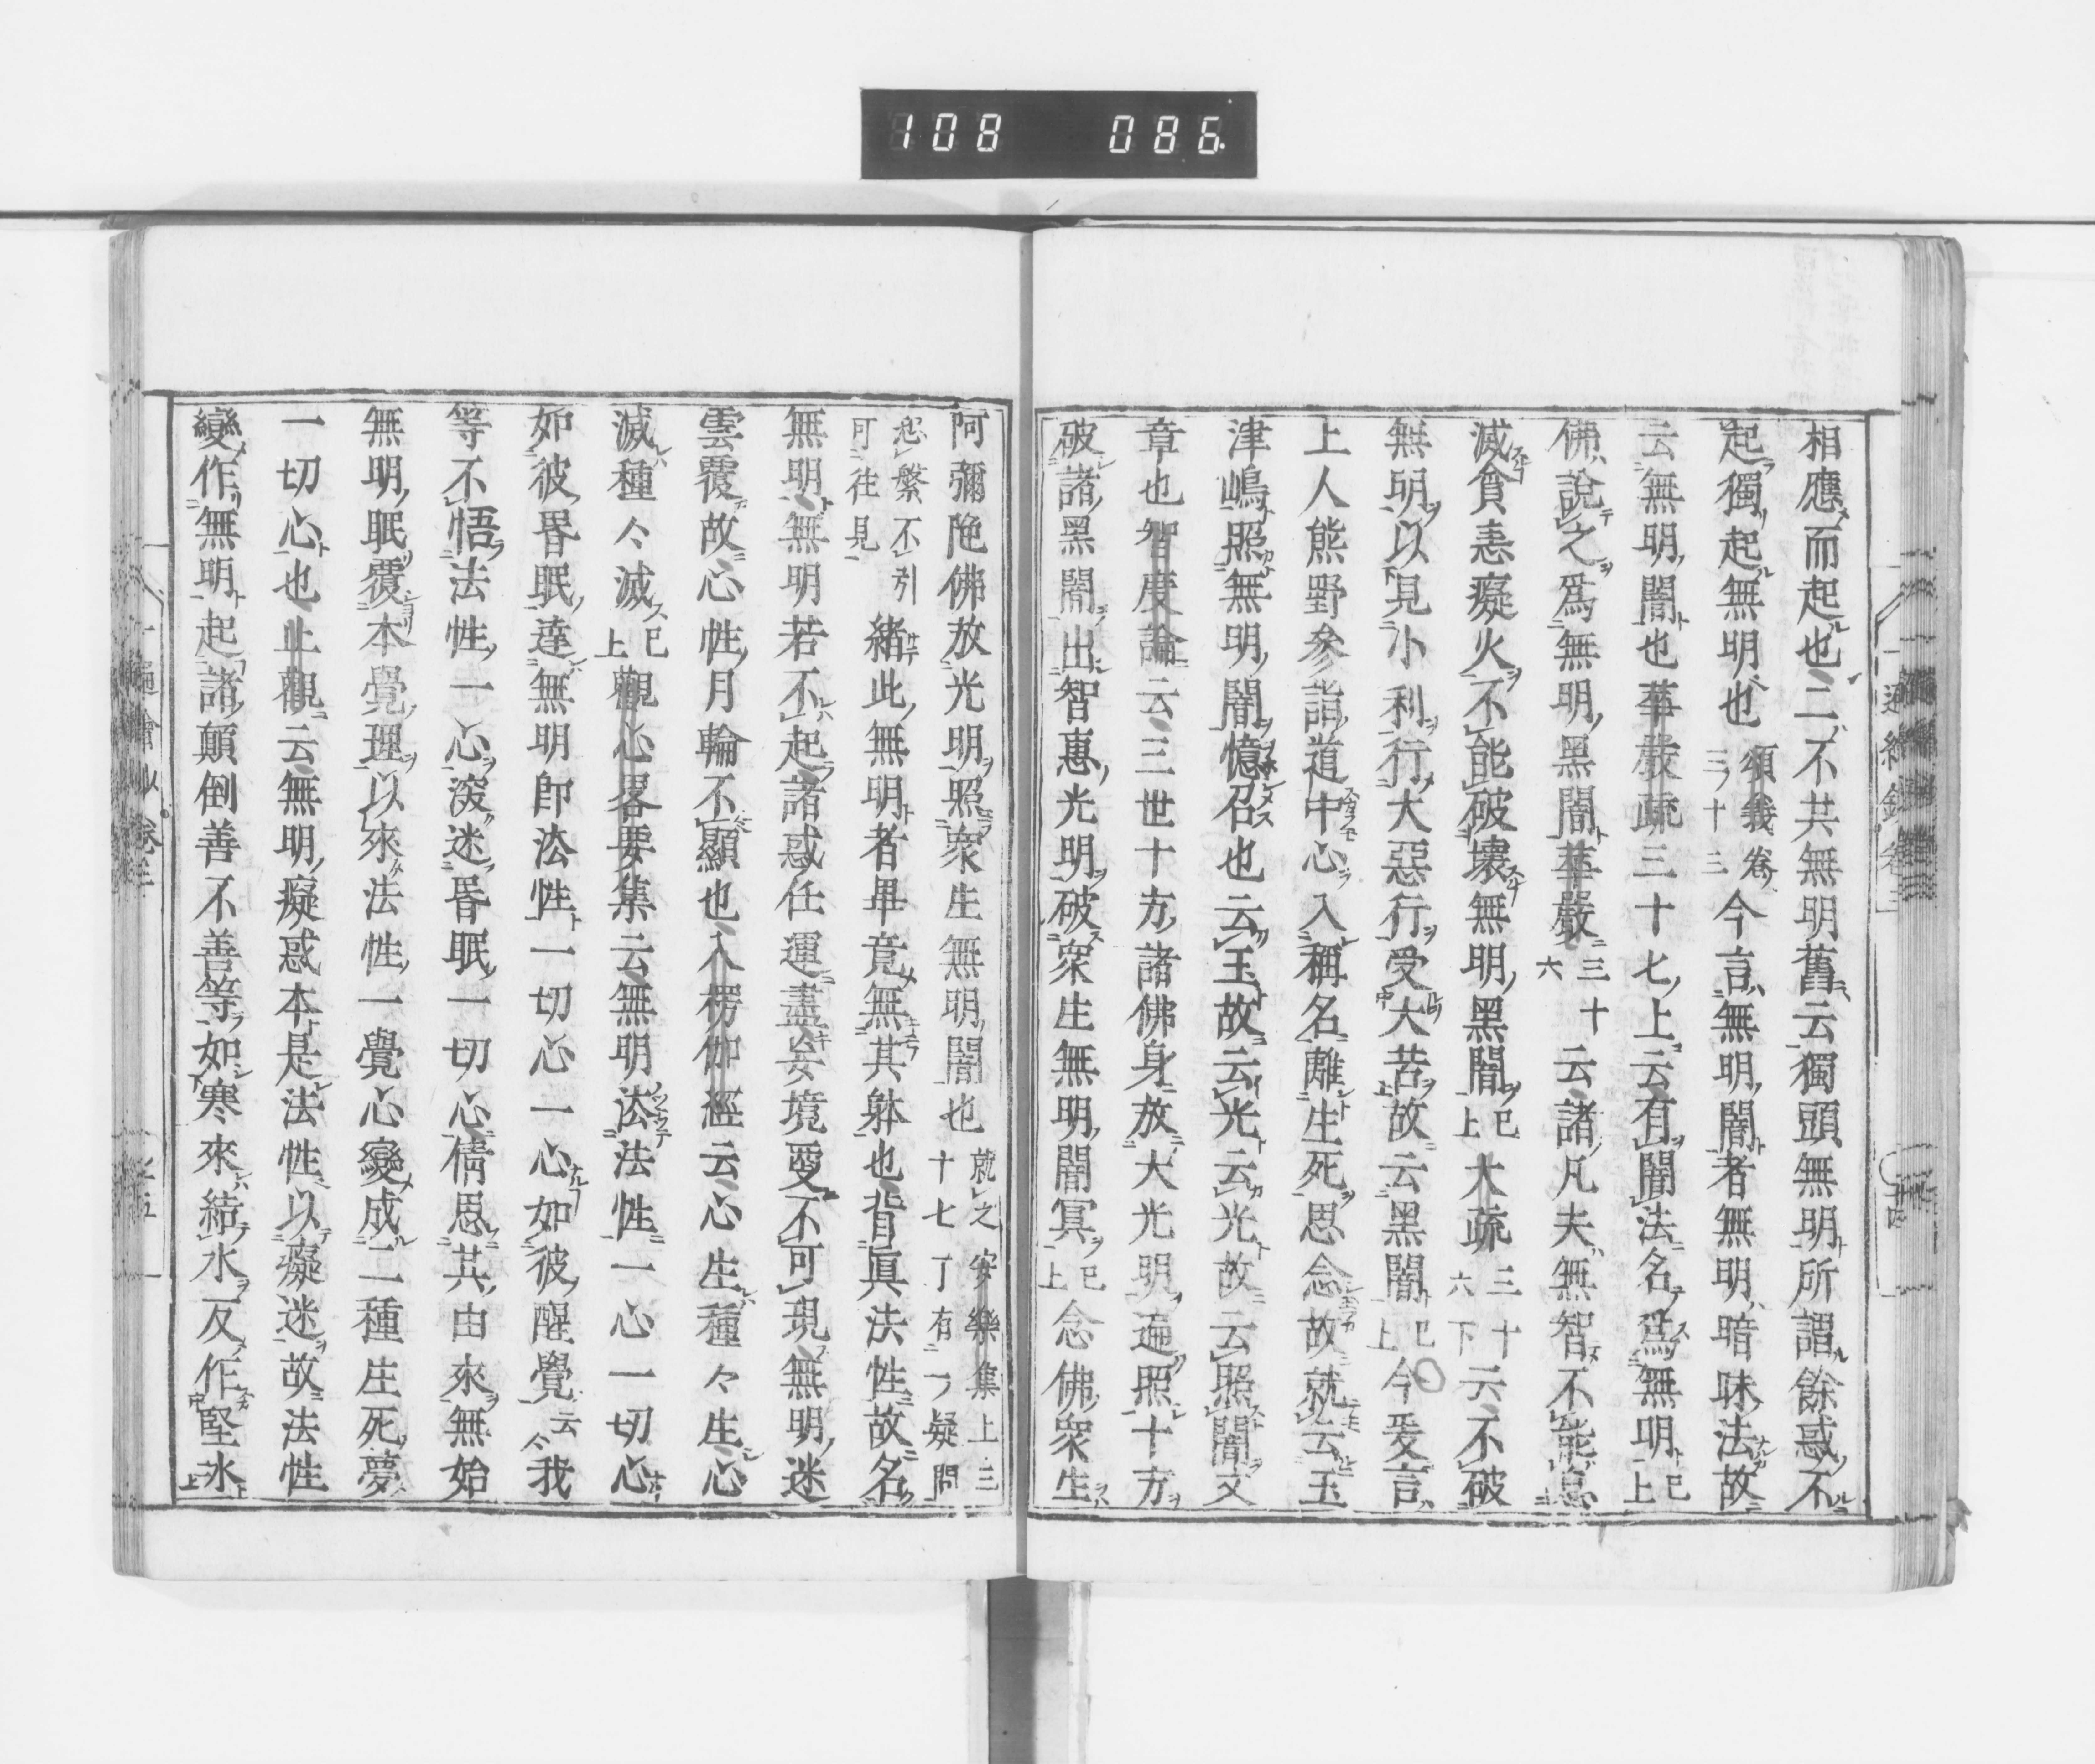 108 086
相應而起也二不共無明舊云獨頭無明所謂餘惑不
起獨起無明也頌義卷三ノ十三今言無明闇者無明暗昧法故
云無明闇也華嚴疏三十七上云有闇法名爲無明已上
佛說之爲無明黑闇華嚴三十六云諸凡夫無智不能
滅貪恚癡火不能破壞無明黑闇已上大疏三十六下云不破
無明以見小利行大惡行受大苦故云黑闇已上今爰言
上人熊野參詣道中心入稱名離生死思念故就云玉
津嶋照無明闇憶召也云玉故云光云光故云照闇文
章也智度論云三世十方諸佛身放大光明遍照十方
破諸黑闇出智惠光明破衆生無明闇冥已上念佛衆生
阿彌陀佛放光明照衆生無明闇也就之安樂集上三十七丁有一疑問
恐繁不引可往見緒此無明者畢竟無其躰也背眞法性故名
無明無明若不起諸惑任運盡妄境愛不可現無明迷
雲覆故心性月輪不顯也入楞伽經云心生種々生心
滅種々滅已上觀心畧要集云無明法法性一心一切心
如彼昬眠達無明卽法性一切心一心如彼醒覺云々我
等不悟法性一心深迷昬眠一切心倩思其由來無始
無明眠覆本覺理以來法性一覺心變成二種生死夢
一切心也止觀云無明癡惑本是法性以癡迷故法性
變作無明起諸顛倒善不善等如寒來結水反作堅冰